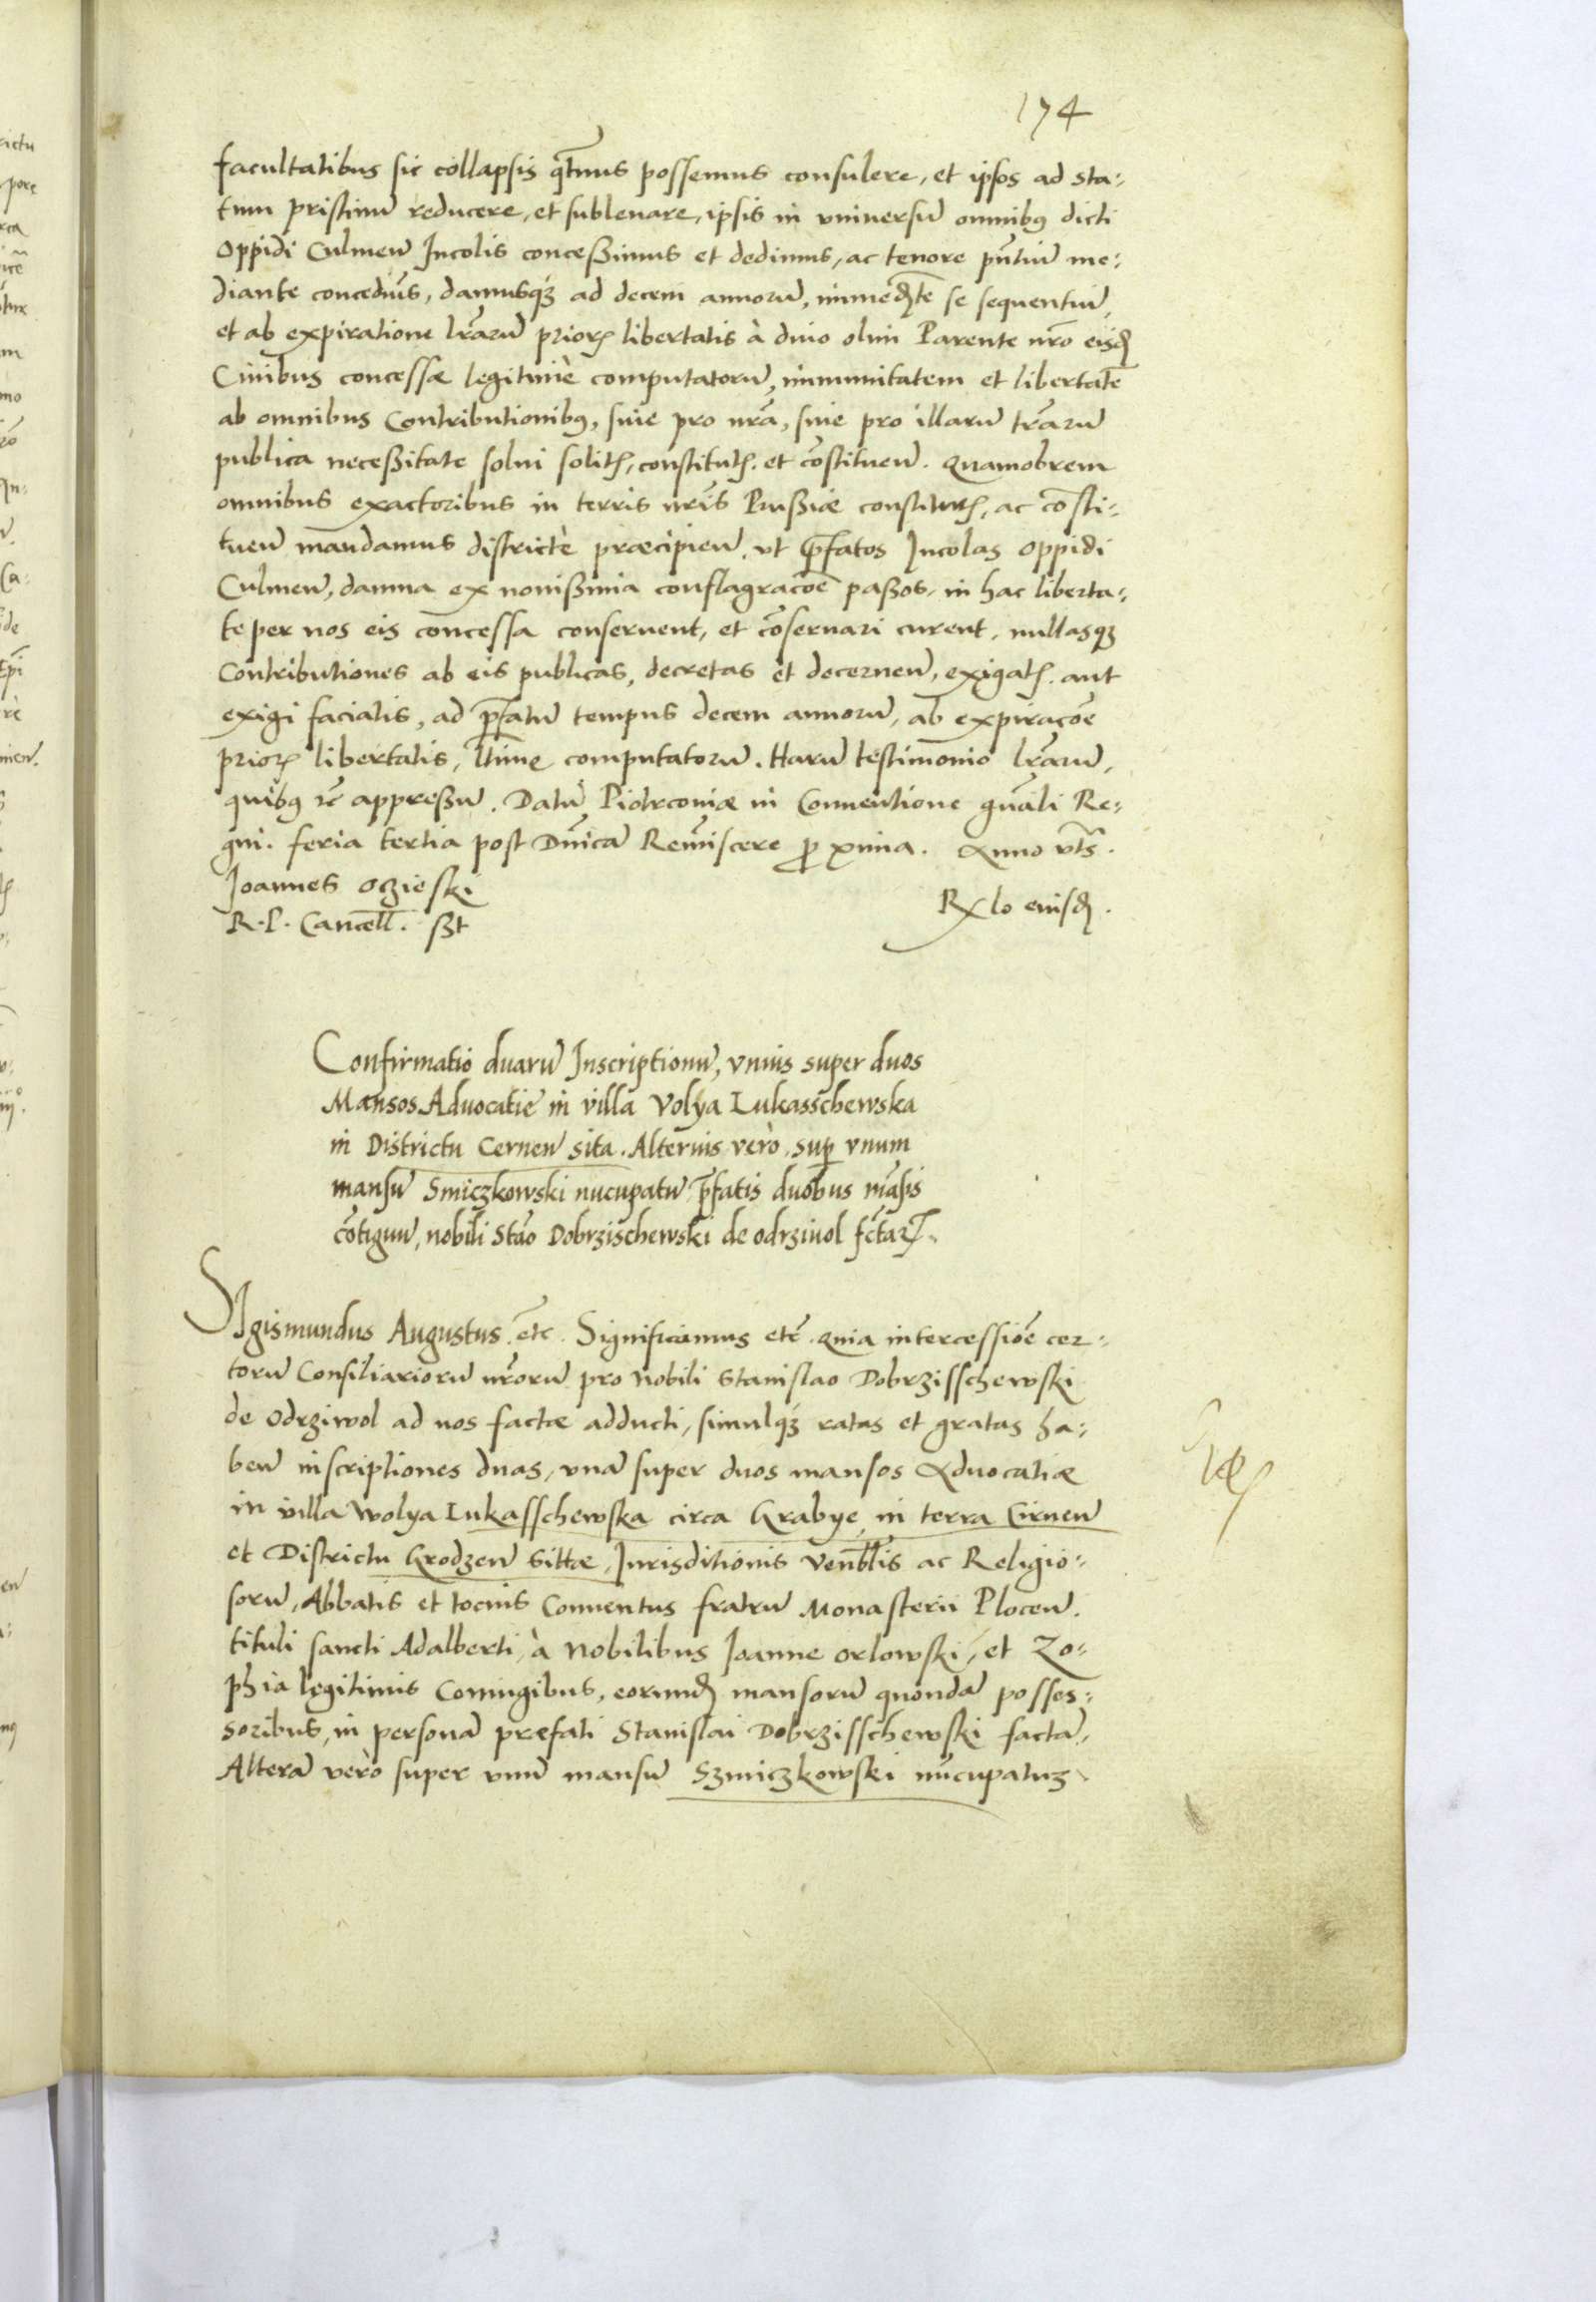 174
facultatibus sic collapsis qtnus possemus consulere, et ipsos ad sta-
tum pristinū reducere, et subleuare, ipsis in vniuersū omnibꝰ dicti
Oppidi Culmeñ Incolis conceßimus et dedimus, ac tenore pñtiū me-
diante concedim̄s, damusqꝫ ad decem annorū, immed̄te se sequentiū,
et ab expiratione lr̄arū prioris libertatis à diuo olim Parente nr̄o eisd
Ciuibus concessæ legitimè computatorū, immunitatem et libertatē
ab omnibus Contributionibꝰ, siue pro nr̄a, siue pro illarū tr̄arū
publica neceßitate solui solitis, constitutis et cōstitueñ. Quamobrem
omnibus exactoribus in terris nr̄is Prußiæ constitutis, ac cōsti-
tueñ mandamus districtè præcipieñ, vt p̄fatos Incolas Oppidi
Culmeñ, damna ex nouißima conflagracōe paßos, in hac liberta-
te per nos eis concessa conseruent, et cōseruari curent, nullasqꝫ
Contributiones ab eis publicas, decretas et decerneñ, exigatis aut
exigi faciatis, ad p̄fatū tempus decem annorū, ab expiracōe
prioris libertatis, ltime computatorū. Harū testimonio lr̄arū,
quibꝰ etc appreßū. Datū Piotrconiæ in Conuentione gn̄ali Re-
gni. feria tertia post Dn̄icā Reminiscere proxima. Anno vts.
Joannes Oczieski
R. P. Cancell. sst
Rlo eiusd.
Confirmatio duarū Inscriptionū, vnius super duos
Mansos Aduocatie in villa Volya Lukasschewska
in Districtu Cerneñ sita. Alterius verò sup vnum
mansū Smiczkowski nūcupatū p̄fatis duobus māsis
cōtiguū, nobili Stāo Dobrzischewski de odrziuol fctar.
SIgismundus Augustus etc. Significamus etc̄ quia intercessiōe cer-
torū Consiliariorū nr̄orū pro Nobili Stanislao Dobrzisschewski
de Odrziwol ad nos factæ adducti, simulqꝫ ratas et gratas ha-
beñ inscriptiones duas, vnā super duos mansos Aduocatiæ
in villa Wolya Lukasschewska circa Grabye in terra Cirneñ
et Districtu Grodzeñ Sittæ, Jurisditionis Ven̄blis ac Religio-
sorū, Abbatis et tocius Conuentus fratrū Monasterii Ploceñ.
tituli sancti Adalberti, à Nobilibus Joanne Orlowski, et Zo-
phia legitimis Coniugibus, eorund mansorū quondā posses-
soribus, in personā præfati Stanislai Dobrzisschewski factā,
Alterā vèro super vnū mansū Szmiczkowski nūcupatuꝫ